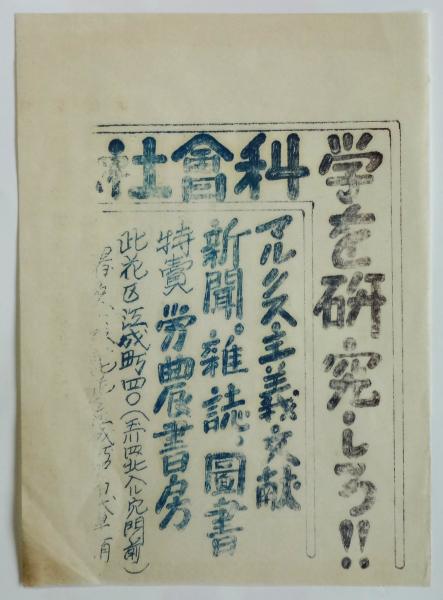 社會科
学を研究しろ!!
マルクス主義文献
新聞。雜誌、圖書
特賣 労農書房
此花区江成町四〇(玉川四北入ル門前)